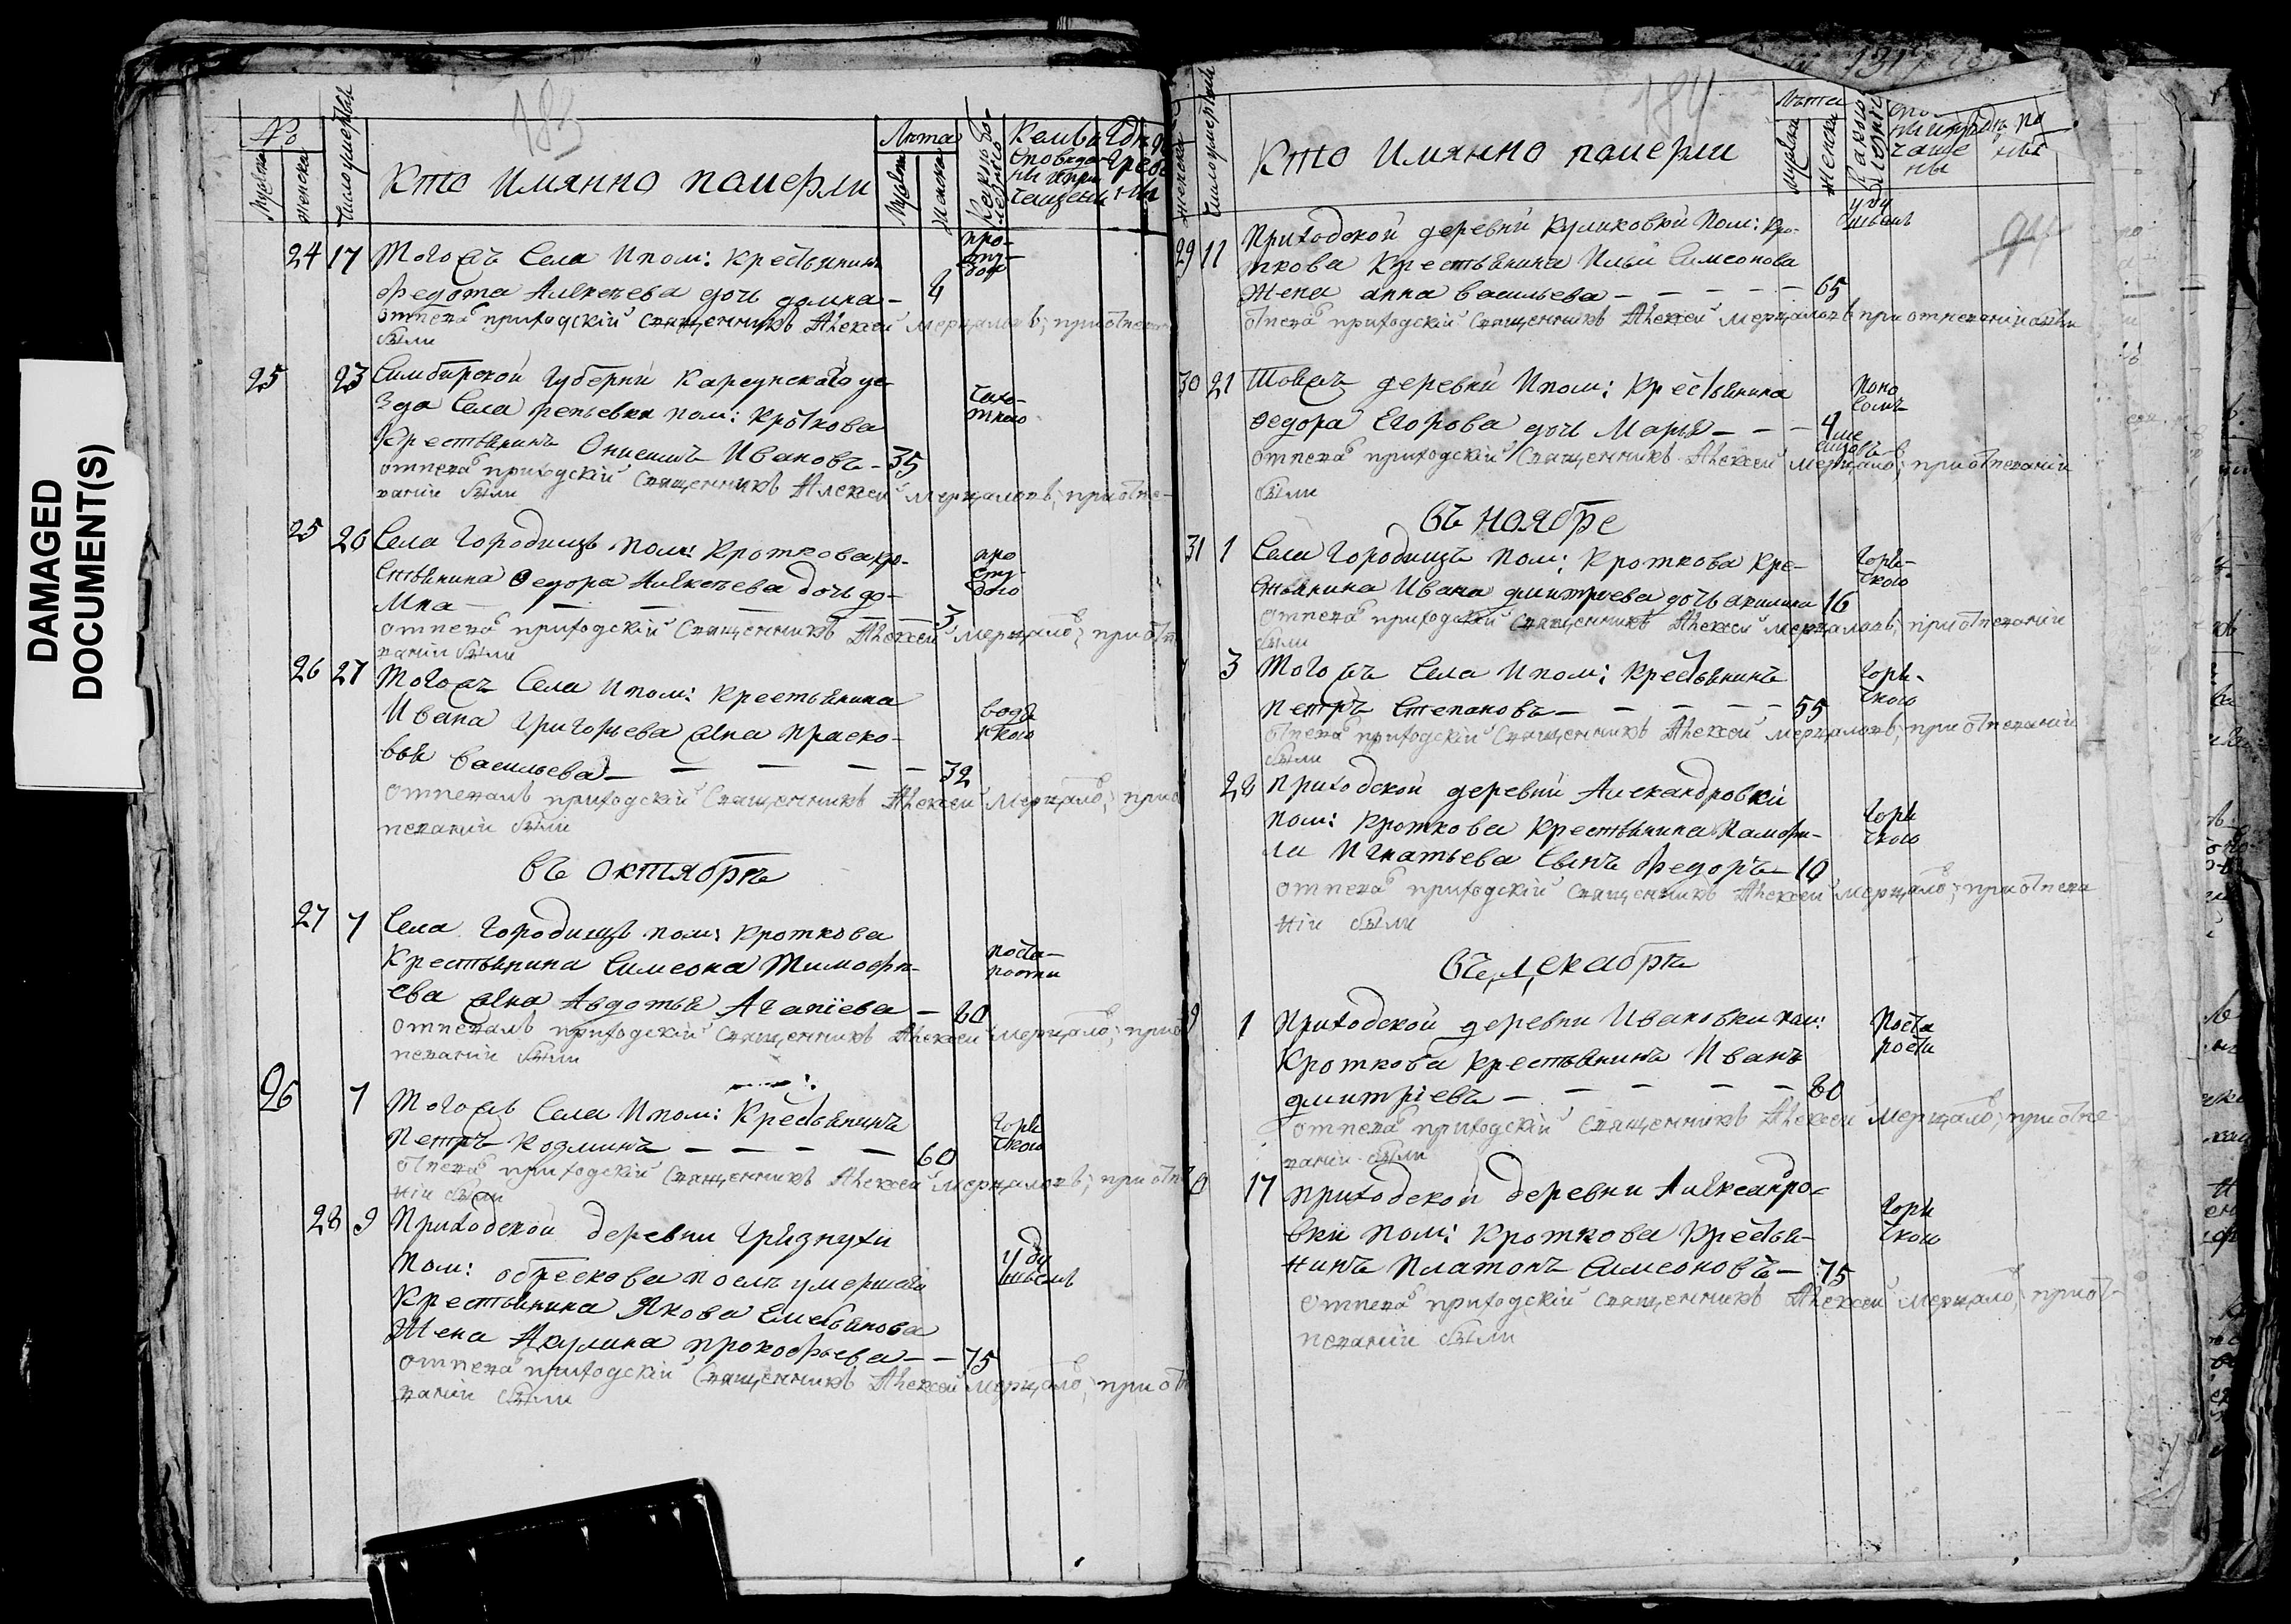 DAMAGED
DOCUMENT(S)
183
№ Лѣта
Мужеска Женска Число умертвія
Кто Имянно померли
24 17 Того жъ Села И пом: Крестьянина
Федота Алексеева дочь домна — 4
про-
сту-
дою
отпевал приходскій Священникъ Алексей Мерцаловъ; при отпевании
были
25 23 Симбирской Губернии Карсунскаго уе-
зда Села репьевки пом: Кроткова
Крестьянинъ Онисимъ Ивановъ — 35
Чахо-
ткою
отпевал приходскій Священникъ Алексей Мерцаловъ; при отпе-
вании были
25 26 Села Городищъ пом: Кроткова кре-
стьянина Федора Алексеева дочь до-
мна — — — — — 3
про
сту-
дою
отпевал приходскій Священникъ Алексей Мерцалов; при отп
вании были
26 27 Того жъ Села И пом: Крестьянина
Ивана Григорьева жена Праско-
вья Васильева — — — — 32
водя
ною
отпевалъ приходскій Священникъ Алексей Мерцалов; при о
певании были
Въ Октябрѣ
27 7 Села Городищъ пом: Кроткова
Крестьянина Симеона Тимофѣ-
ева жена Авдотья Агапіева — 80
поста-
рости
отпевалъ приходскій Священникъ Алексей Мерцалов; при о
певании были
26 7 Того жъ Села И пом: Крестьянинъ
Петръ Козминъ — — — — 60
Горя
чкою
отпевал приходскій Священникъ Алексей Мерцаловъ; при отп
ніи были
28 9 Приходской деревни Грязнухи
Пом: обрескова послѣ умершаго
Крестьянина Якова Емельянова
Жена Акулина прокофьева — — 75
уду
шьемъ
отпевал приходскій Священникъ Алексей Мерцалов; при от
вании были
184
94
Лѣта
Женска Число умертвія
Кто Имянно померли
Мужеска Женска
29 11 Приходской деревни Куликовки Пом: Кро-
ткова Крестьянина Ильи Симеонова
Жена анна васильева — — — — — 65
уду
шьемъ
отпевал приходскій Священникъ Алексей Мерцаловъ при отпевании были
30 21 Той жъ деревни И пом: Крестьянина
Федора Егорова дочь Марья — — — 4 ме
сицовъ
Поно
сомъ
отпевал приходскій Священникъ Алексей Мерцалов; при отпевании
были
въ ноябре
31 1 Села Городищъ пом: Кроткова Кре-
стьянина Ивана дмитриева дочь акилина 16
Горя-
чкою
отпевал приходскій Священникъ Алексей Мерцаловъ; при отпевании
были
3 Того жъ Села И пом: Крестьянинъ
Петръ Степановъ — — — — — 55
Горя-
чкою
отпевал приходскій Священникъ Алексей Мерцаловъ; при отпевании
были
28 Приходской деревни Александровки
пом: Кроткова Крестьянина Памфи-
ла Игнатьева Сынъ Федоръ — 10
Горя
чкою
отпевал приходскій Священникъ Алексей Мерцалов; при отпева
ніи были
въ декабрѣ
1 Приходской деревни Ивановки пом:
Кроткова Крестьянинъ Иванъ
дмитріевъ — — — — — 80
Поста
рости
отпевал приходскій Священникъ Алексей Мерцалов; при отпе-
вании были
17 Приходской деревни Александро-
вки пом: Кроткова Крестья-
нинъ Платонъ Симеоновъ — 75
Горя
чкою
отпевал приходскій Священникъ Алексей Мерцалов; при от-
певании были